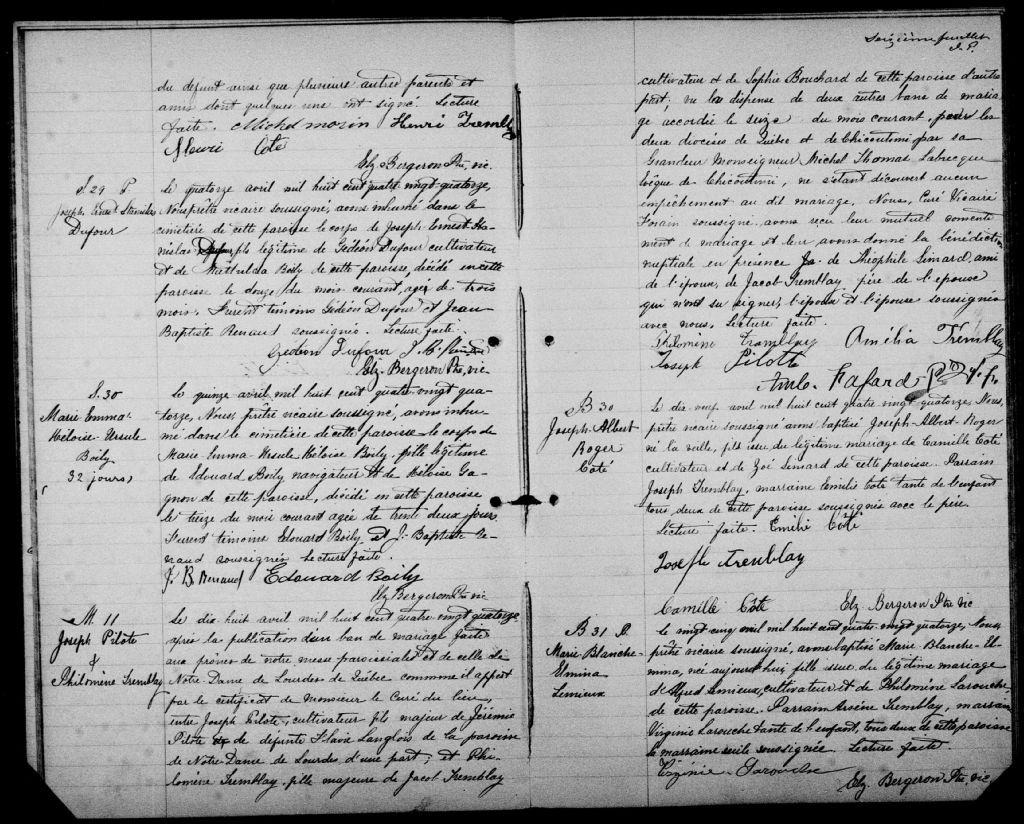 du défunt ainsi que plusieurs autres parents et
amis dont quelques uns ont signé. Lecture
faite. Michel morin Henri Trembly
Fleuri Coté
Elz Bergeron Ptre, vic.
S. 29 P
Joseph Ernest Stanislas
Dufour
Le quatorze avril mil huit cent quatre vingt quatorze,
Nous prêtre vicaire soussigné, avons inhumé dans le
cimetière de cette paroisse le corps de Joseph Ernest Sta-
nislas Dufour fils légitime de Gédéon Dufour cultivateur
et de Mathilda Boily de cette paroisse, décédé en cette
paroisse le douze du mois courant, agé de trois
mois. Furent témoins Gédéon Dufour et Jean
Baptiste Renaud soussignés. Lecture faite.
Gédéon Dufour J. B. Renaud
Elz. Bergeron Ptre, vic
S. 30
Marie Emma
Héloise Ursule
Boily
32 jours
Le quinze avril mil huit cent quatre vingt qua-
torze, Nous, prêtre vicaire soussigné, avons inhu-
mé dans le cimetière de cette paroisse le corps de
Marie Emma Ursule Héloise Boily, fille légitime
de Edouard Boily navigateur et de Héloise Ga-
gnon de cette paroisse, décédé en cette paroisse
le treize du mois courant agée de trente deux jours
Furent témoins Edouard Boily et J. Baptiste Re-
naud soussignés Lecture faite.
J. B Renaud Edouard Boily
Elz Bergeron Ptre vic
M 11
Joseph Pilote
&
Philomène Tremblay
Le dix huit avril mil huit cent quatre vingt quatorze
après la publication d'un ban de mariage faite
aux prônes de notre messe paroissiale et de celle de
Notre-Dame de Lourdes de Québec comme il appert
par le certificat de Monsieur le Curé du lieu
entre Joseph Pilote, cultivateur fils majeur de Jérémie
Pilote et de défunte Flavie Langlois de la paroisse
de Notre-Dame de Lourdes d'une part; et Phi-
lomène Tremblay, fille majeure de Jacob Tremblay
Seizième feuillet
cultivateur et de Sophie Bouchard de cette paroisse d'autre
part; vu la dispense de deux autres bans de maria-
ge accordée le seize du mois courant, pour les
deux diocèses de Québec et de Chicoutimi par sa
Grandeur Monseigneur Michel Thomas Labrecque
Évêque de Chicoutimi, ne s'étant découvert aucun
empêchement au dit mariage, Nous, Curé Vicaire
Forain soussigné, avons reçu leur mutuel consente-
ment de mariage et leur avons donné la bénédiction
nuptiale en présence de Théophile Simard, ami
de l'époux, de Jacob Tremblay, père de l'épouse
qui n'ont su signer, l'époux et l'épouse soussignés
avec nous. Lecture faite.
Philomène Tremblay Amélia Tremblay
Joseph Pilotte
Ambr. Fafard Ptre V. f.
B 30
Joseph Albert
Roger
Coté
Le dix neuf avril mil huit cent quatre vingt quatorze, Nous,
prêtre vicaire soussigné avons baptisé Joseph-Albert-Roger
né la veille, fils issu du légitime mariage de Camille Coté
cultivateur et de Zoé Simard de cette paroisse. Parrain
Joseph Tremblay, marraine Emilie Coté tante de l'enfant
tous deux de cette paroisse soussignés avec le père.
Lecture faite. Emilie Côté
Joseph tremblay
Camille Côté Elz. Bergeron Ptre Vic
B 31
Marie Blanche
Elmina
Lemieux
Le vingt cinq avril mil huit cent quatre vingt quatorze, Nous,
prêtre vicaire soussigné, avons baptisé Marie Blanche-El-
mina, née aujourd'hui, fille issue du légitime mariage
d'Alfred Lemieux, cultivateur et de Philomène Larouche
de cette paroisse. Parrain Arsène Tremblay, marraine
Virginie Larouche tante de l'enfant, tous deux de cette paroisse
la marraine seule soussignée. Lecture faite
Virginie Larouche
Elz. Bergeron Ptre, vic